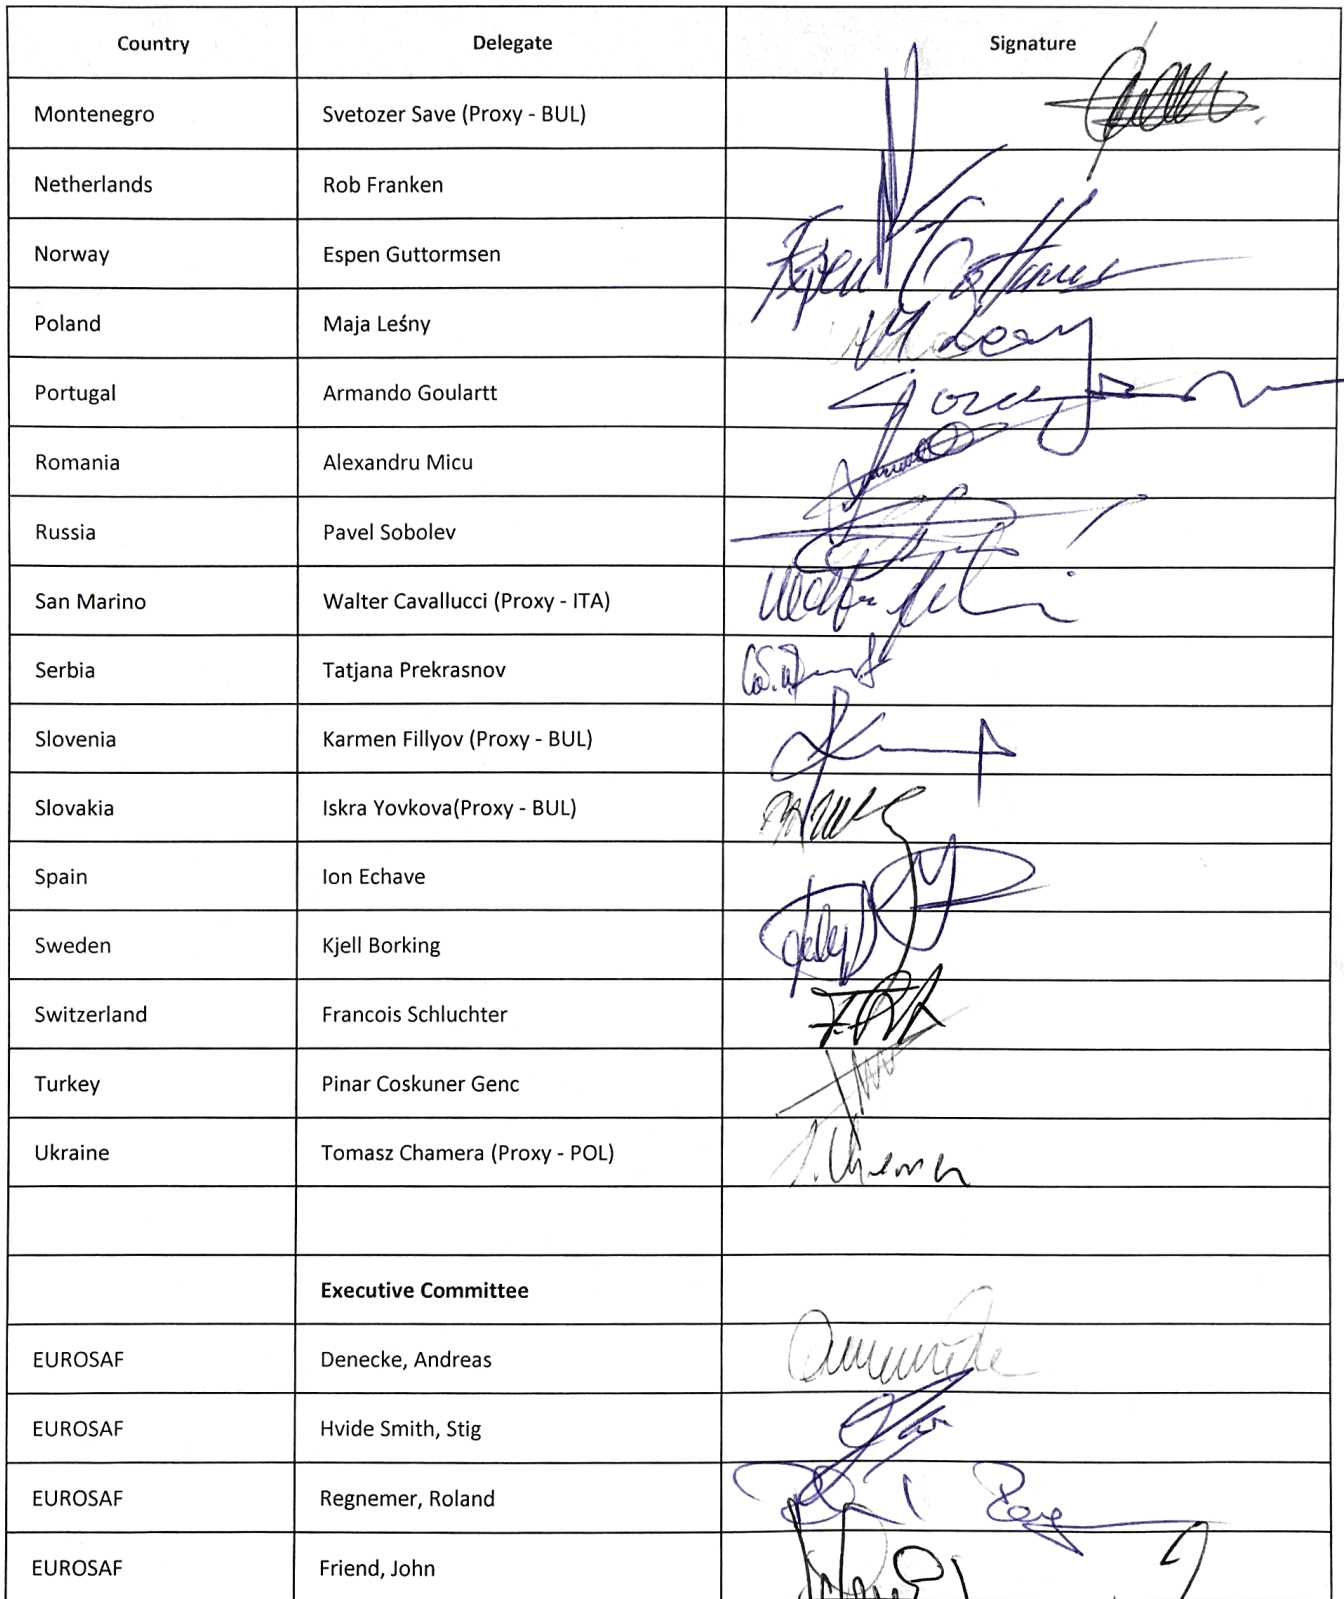 Country Delegate Signature
Montenegro Svetozer Save (Proxy - BUL)
Netherlands Rob Franken
Norway Espen Guttormsen
Poland Maja Leśny
Portugal Armando Goulartt
Romania Alexandru Micu
Russia Pavel Sobolev
San Marino Walter Cavallucci (Proxy - ITA)
Serbia Tatjana Prekrasnov
Slovenia Karmen Fillyov (Proxy - BUL)
Slovakia Iskra Yovkova(Proxy - BUL)
Spain Ion Echave
Sweden Kjell Borking
Switzerland Francois Schluchter
Turkey Pinar Coskuner Genc
Ukraine Tomasz Chamera (Proxy - POL)
Executive Committee
EUROSAF Denecke, Andreas
EUROSAF Hvide Smith, Stig
EUROSAF Regnemer, Roland
EUROSAF Friend, John